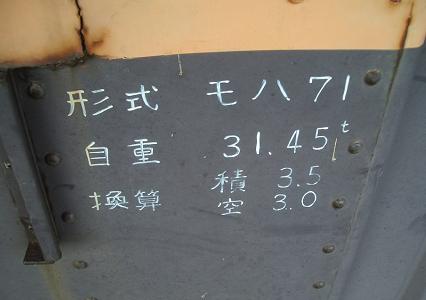 形式 モハ71
自重 31.45t
換算 積 3.5
空 3.0